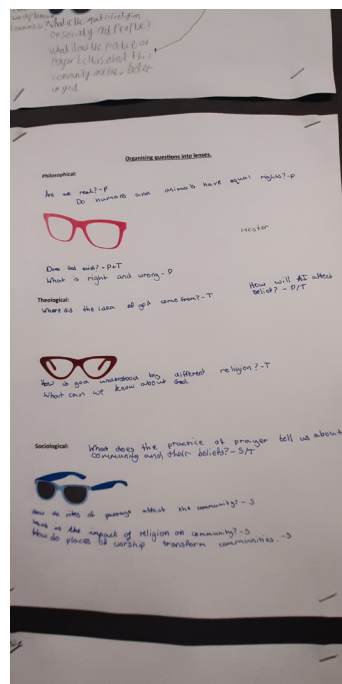 What is the impact of religion
on society and People?
What does the Practice of
Prayer tell us about this
community and their beliefs
Organising questions into lenses.
Philosophical:
Are we real? - P
Do humans and animals have equal rights? - P
Hester
Does God exist? - P + T
What is right and wrong - P
How will AI affect
belief? - P/T
Theological:
Where did the idea of god come from? - T
How is god understood by different religion? - T
What can we know about God.
Sociological:
What does the practice of prayer tell us about
community and their beliefs? - S/T
How do rites of passage affect the community? - S
What is the impact of religion on community? - S
How do places of worship transform communities. - S